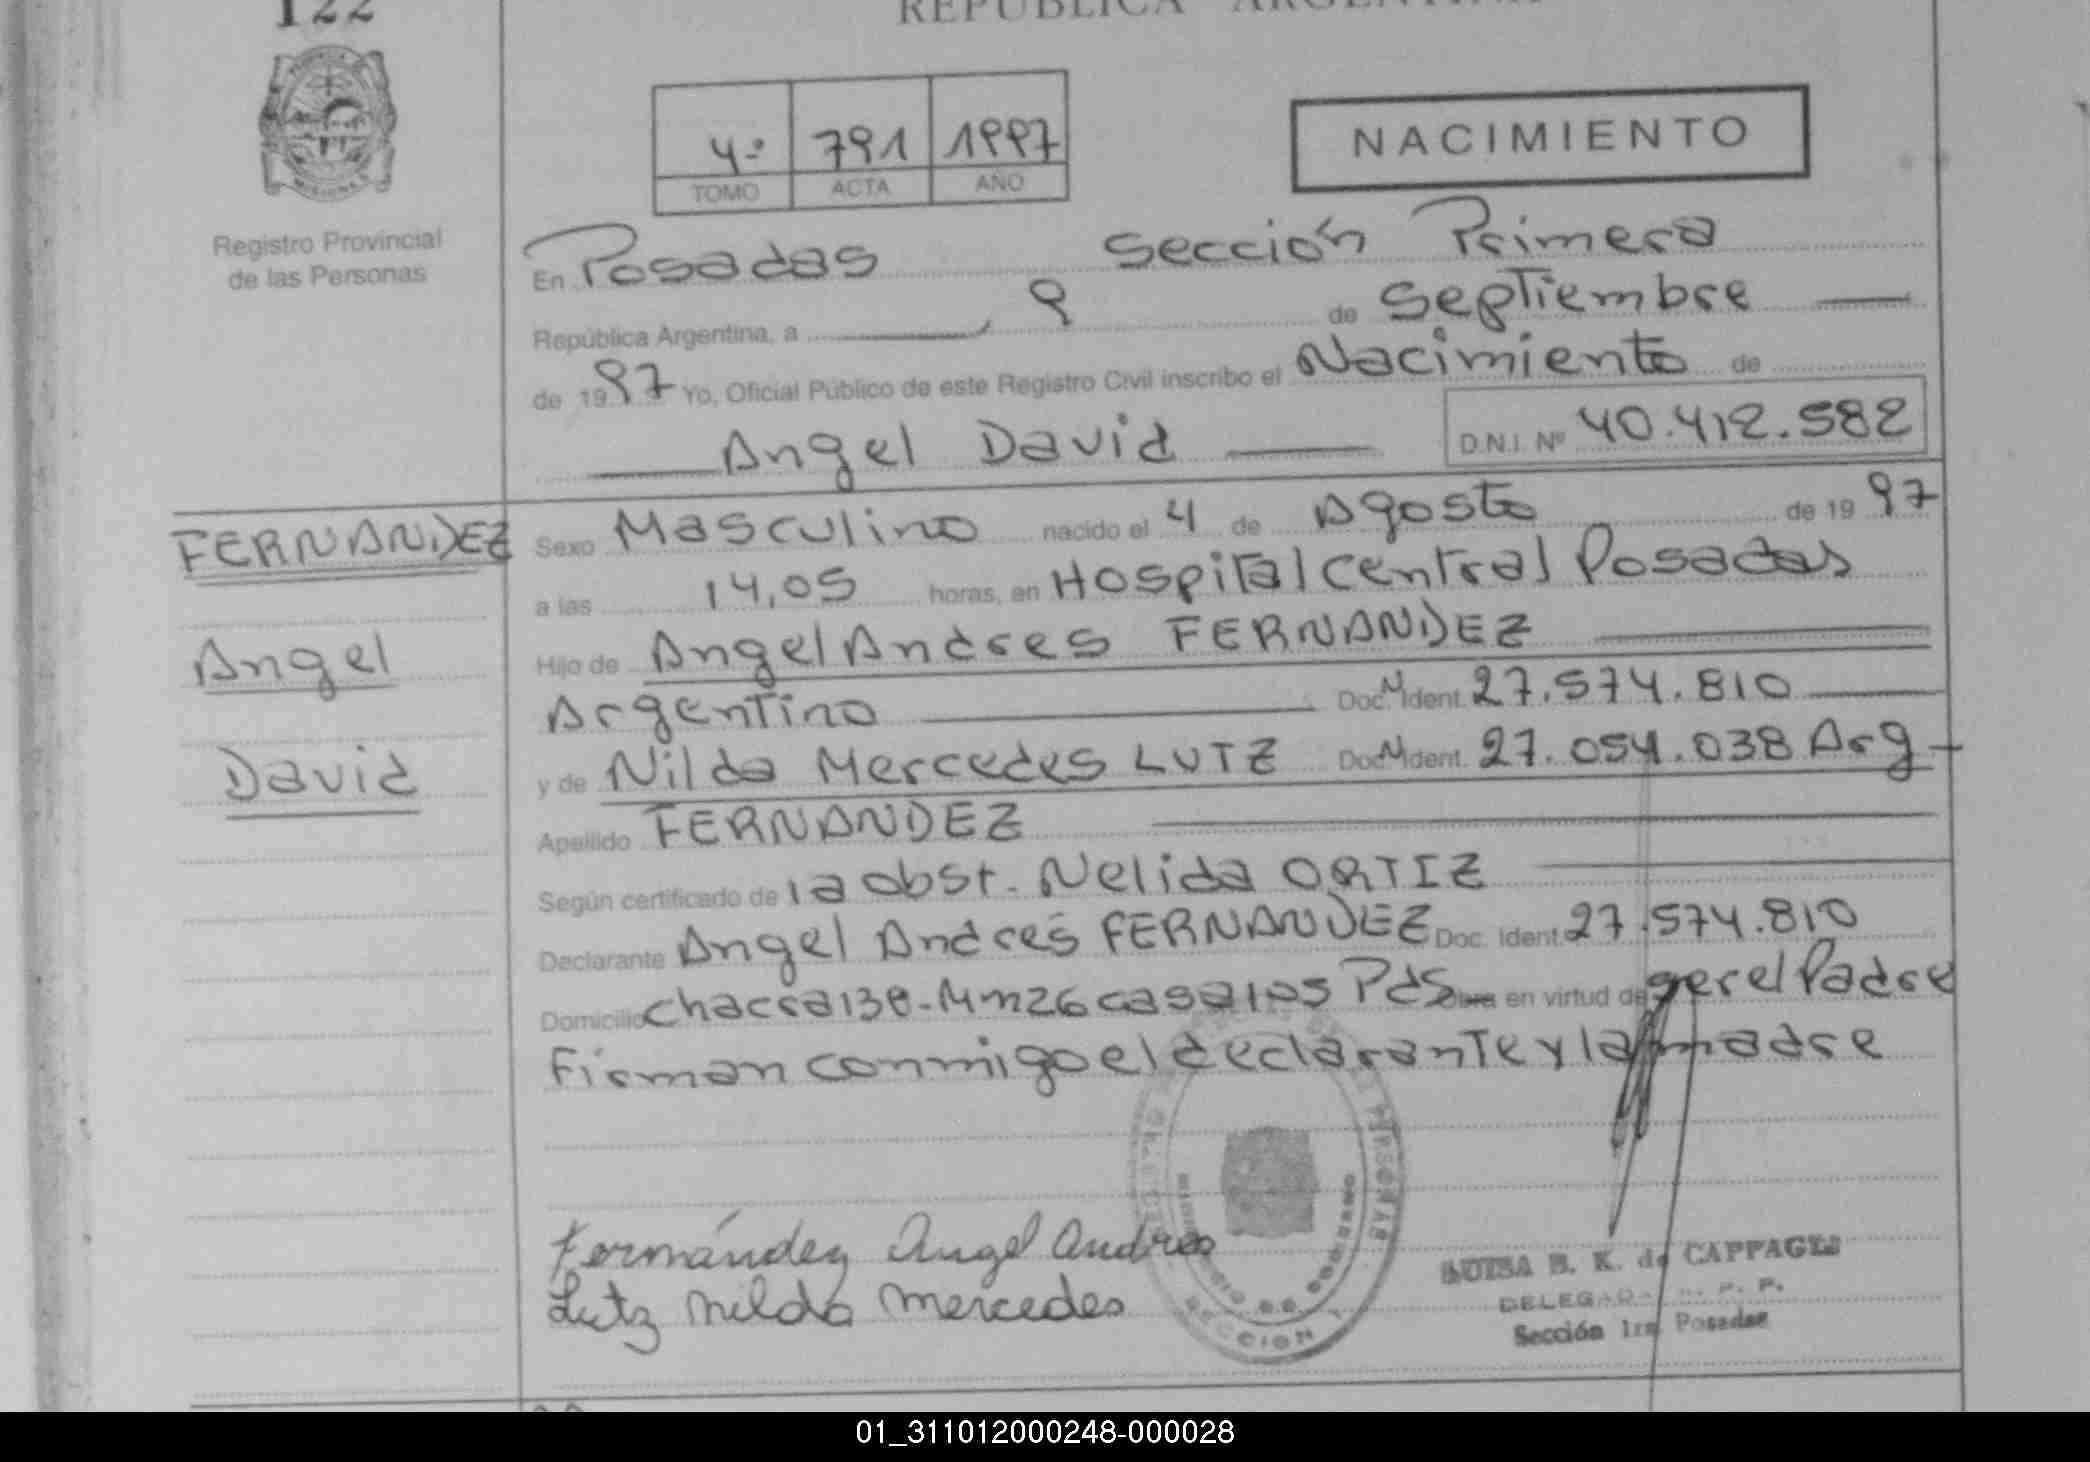 122
REPUBLICA ARGENTINA
4º 791 1997
TOMO ACTA AÑO
NACIMIENTO
MISIONES
Registro Provincial
de las Personas
En Posadas Sección Primera
República Argentina, a 9 de Septiembre
de 1997 Yo, Oficial Público de este Registro Civil inscribo el Nacimiento de
Angel David D.N.I. Nº 40.412.582
FERNANDEZ
Angel
David
Sexo Masculino nacido el 4 de Agosto de 1997
a las 14,05 horas, en Hospital Central Posadas
Hijo de Angel Andres FERNANDEZ
Argentino Doc. N Ident. 27.574.810
y de Nilda Mercedes LUTZ Doc. N Ident. 27.054.038 Arg
Apellido FERNANDEZ
Según certificado de la obst. Nelida ORTIZ
Declarante Angel Andres FERNANDEZ Doc. Ident. 27.574.810
Domicilio Chacra 138-Mzn 26 casa 105 Pds en virtud de ser el Padre
Firman conmigo el declarante y la madre
Fernández Angel Andres
Lutz Nilda Mercedes
SECCION 1
LUISA B. K. de CAPPAGLI
Sección 1ra. Posadas
01_311012000248-000028